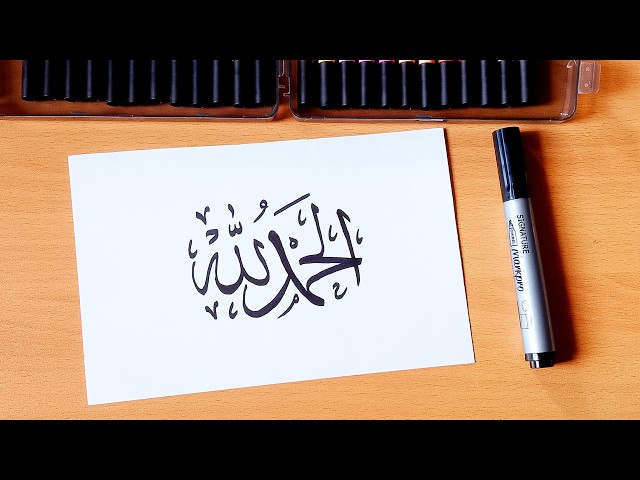 الحمد لله
SIGNATURE
Markpro